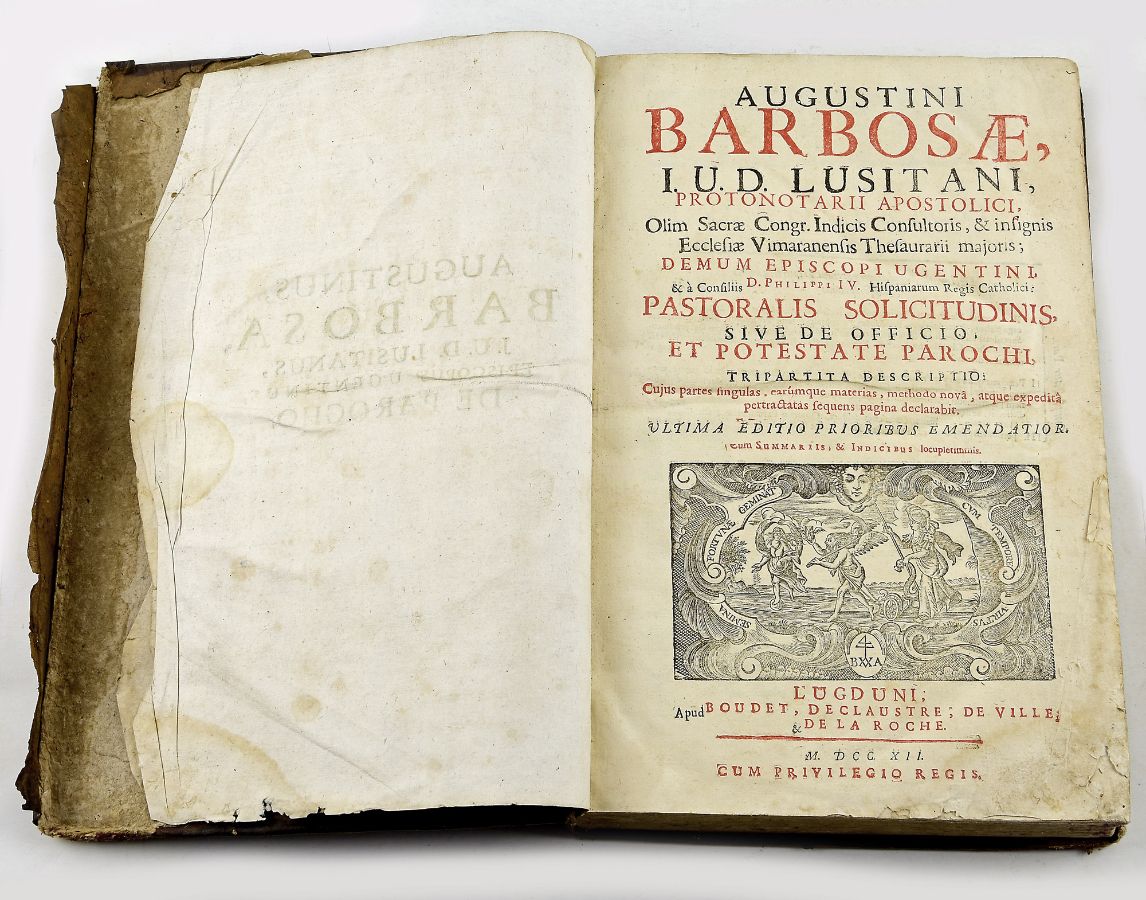 AUGUSTINUS,
BARBOSA,
J.U.D. LUSITANUS,
EPISCOPUS UGENTINUS
DE PAROCHO.
AUGUSTINI
BARBOSÆ,
I. U. D. LUSITANI,
PROTONOTARII APOSTOLICI,
Olim Sacræ Congr. Indicis Conſultoris, & inſignis
Eccleſiæ Vimaranenſis Theſaurarii majoris;
DEMUM EPISCOPI UGENTINI,
& à Conſiliis D. PHILIPPI IV. Hiſpaniarum Regis Catholici:
PASTORALIS SOLICITUDINIS,
SIVE DE OFFICIO,
ET POTESTATE PAROCHI,
TRIPARTITA DESCRIPTIO:
Cujus partes ſingulas, earúmque materias, methodo novâ, atque expeditâ
pertractatas ſequens pagina declarabit.
ULTIMA EDITIO PRIORIBUS EMENDATIOR.
Cum SUMMARIIS, & INDICIBUS locupletiſſimis.
FORTUNÆ GEMINAT
CVM TEMPORE
SEMINA
VIRTVS
BXXA
LUGDUNI,
Apud BOUDET, DECLAUSTRE, DE VILLE,
& DE LA ROCHE.
M. DCC. XII.
CUM PRIVILEGIO REGIS.